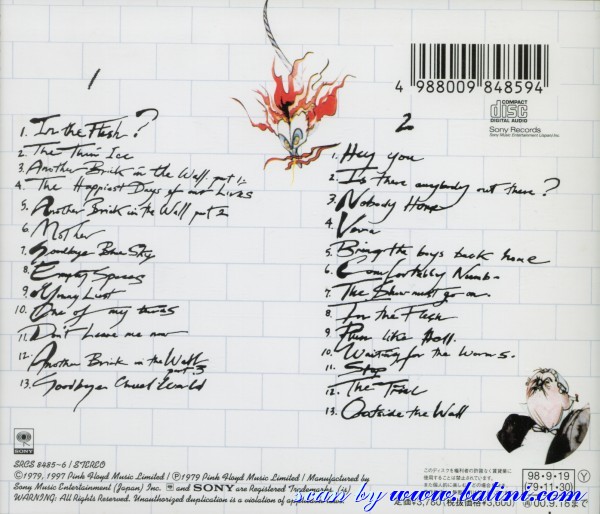 1
4 988009 848594
COMPACT
disc
DIGITAL AUDIO
Sony Records
Sony Music Entertainment (Japan) Inc.
1. In the Flesh?
2. The Thin Ice
3. Another Brick in the Wall part 1
4. The Happiest Days of our Lives
5. Another Brick in the Wall part 2
6. Mother
7. Goodbye Blue Sky
8. Empty Spaces
9. Young Lust
10. One of my turns
11. Don't Leave me now
12. Another Brick in the Wall part 3
13. Goodbye Cruel World
2
1. Hey you
2. Is there anybody out there?
3. Nobody Home
4. Vera
5. Bring the boys back home
6. Comfortably Numb
7. The Show must go on.
8. In the Flesh
9. Run like Hell.
10. Waiting for the Worms.
11. Stop
12. The Trial
13. Outside the Wall
SONY
SRCS 8485~6 / STEREO
©1979, 1997 Pink Floyd Music Limited / ℗1979 Pink Floyd Music Limited / Manufactured by
Sony Music Entertainment (Japan) Inc. and SONY are Registered Trademarks
WARNING: All Rights Reserved. Unauthorized duplication is a violation of
scan by www.batini.com
このディスクを権利者の許諾なく賃貸業に
98・9・19
79・11・30
Y
定価¥3,780 (税抜価格¥3,600)
00.9.18まで